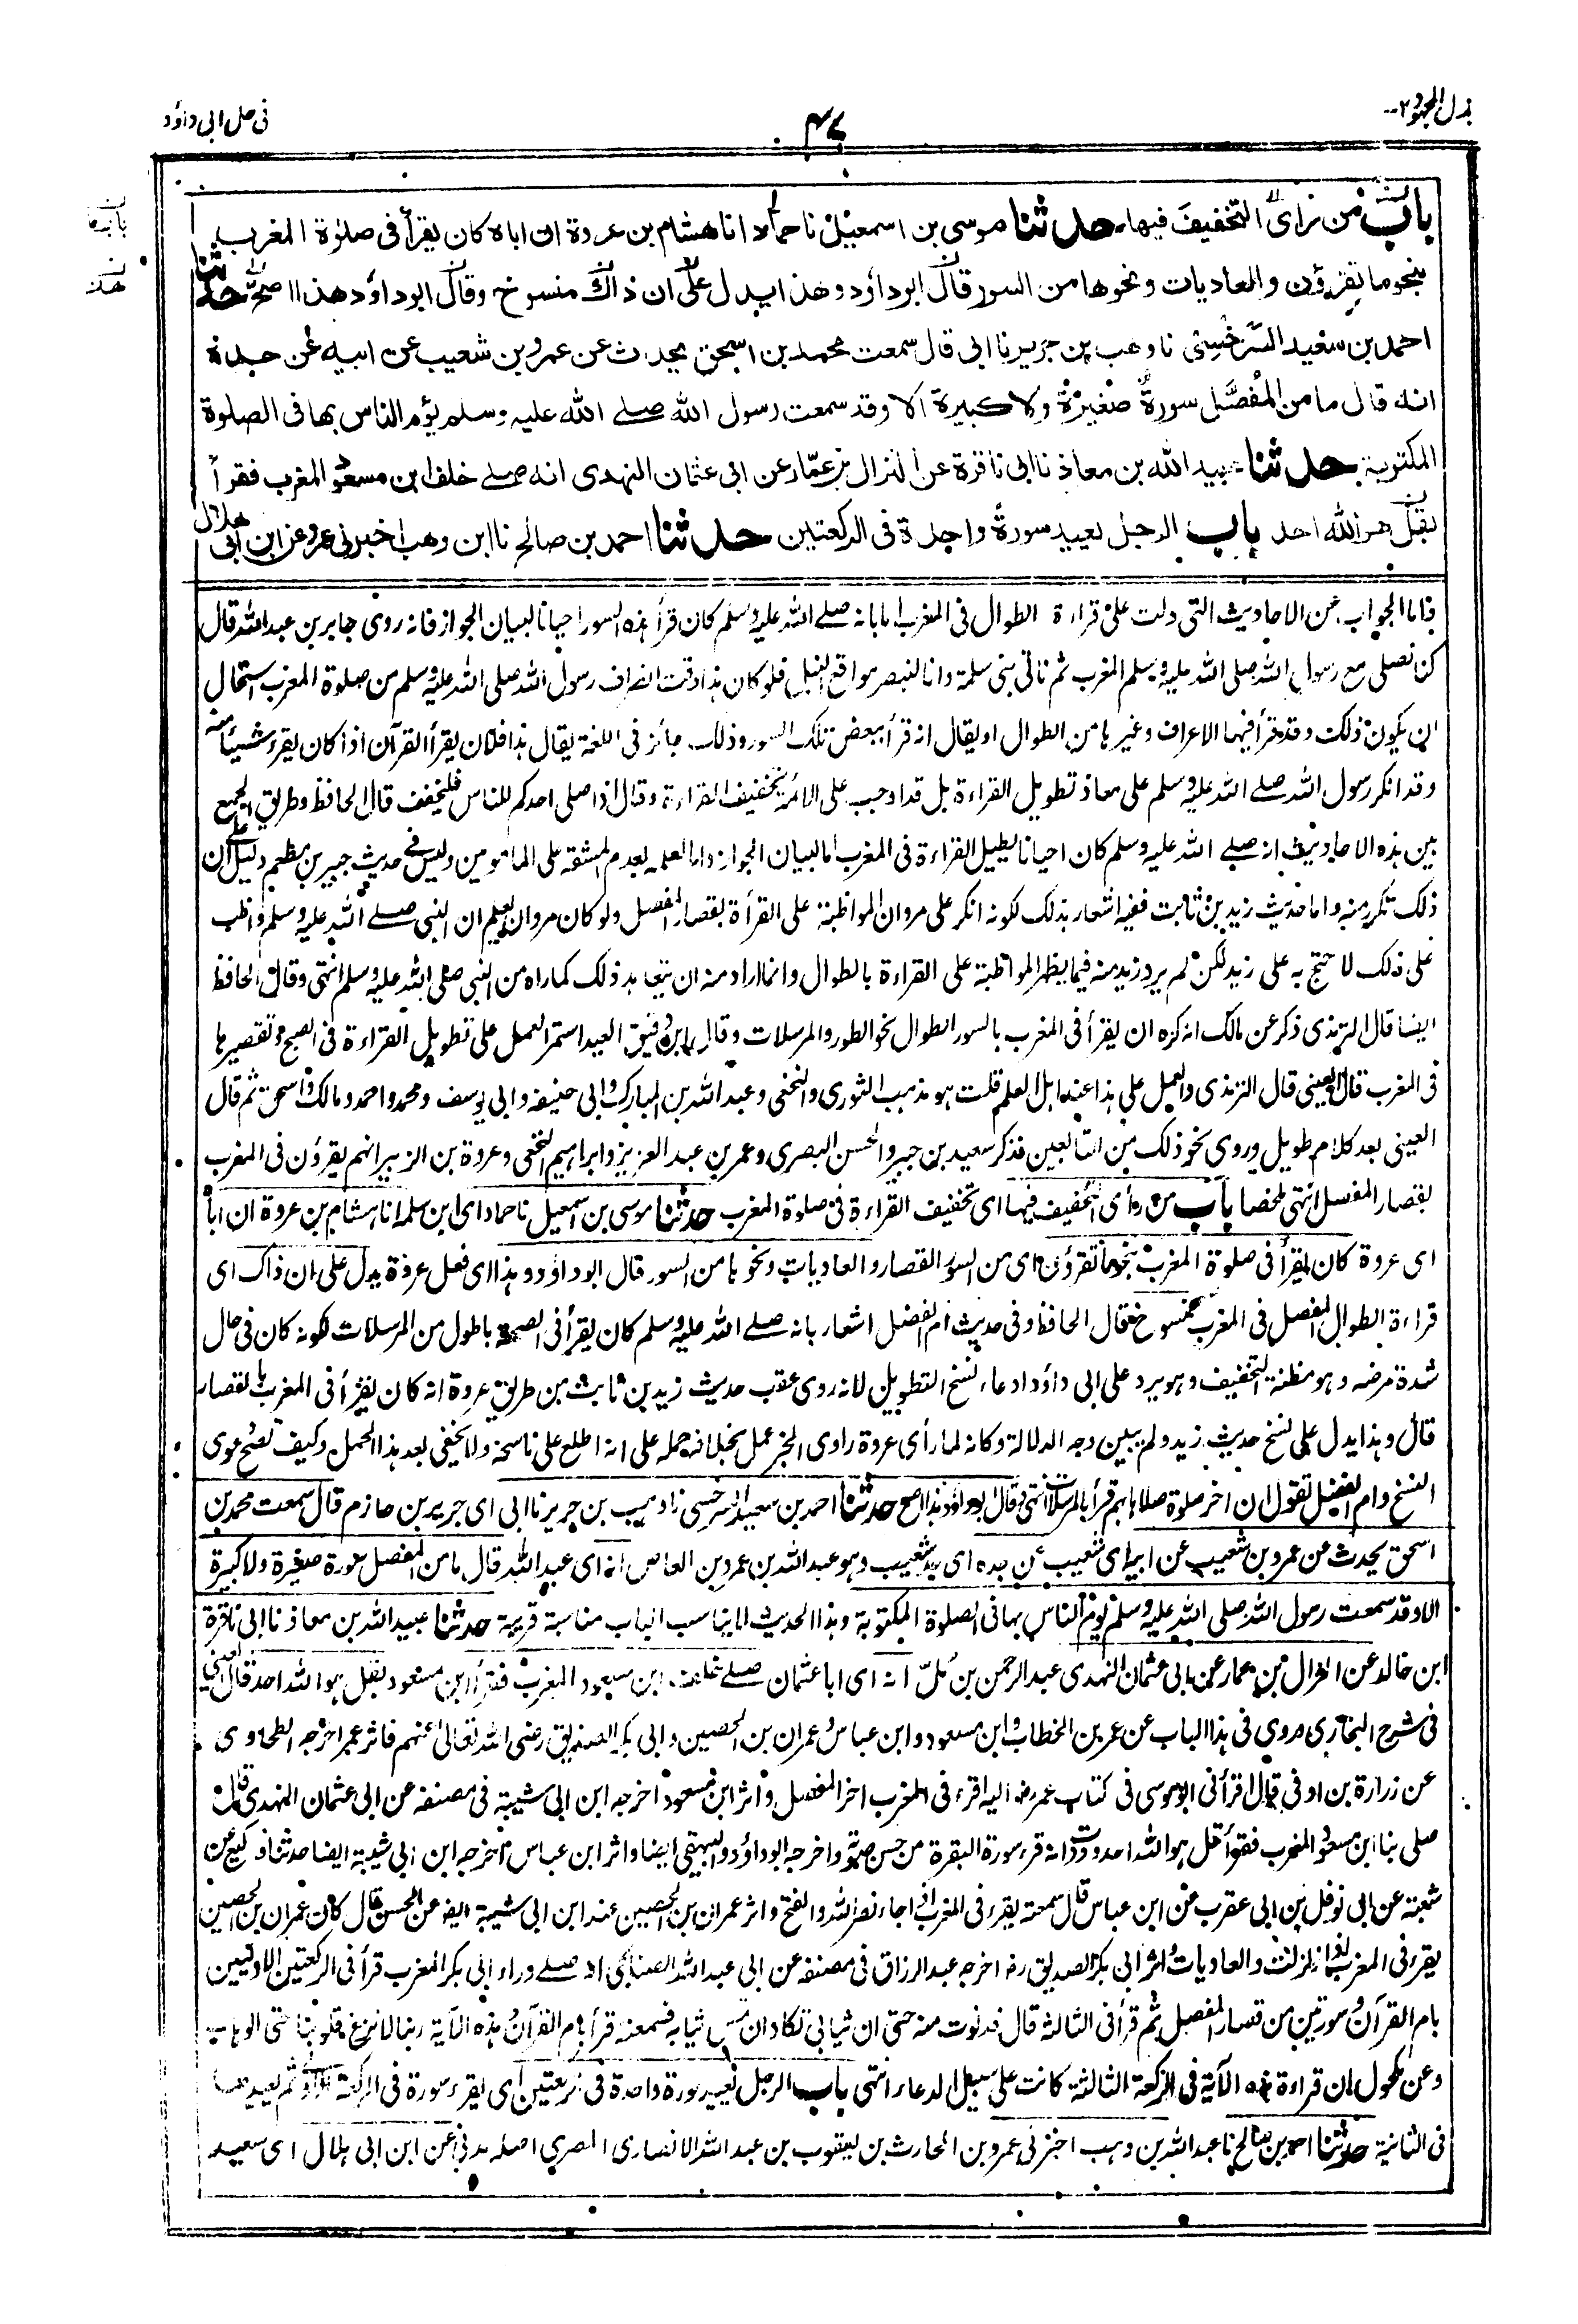 بذل المجهود ٢--
٤٧
فى حل ابى داؤد
باب من رأى التخفيف فيها۔ حدثنا موسى بن اسمعيل نا حماد انا هشام بن عروة ان اباه كان يقرأ فى صلوة المغرب
بنحو ما تقرؤن والعاديات ونحوها من السور قال ابوداؤد وهذا يدل على ان ذاك منسوخ وقال ابوداؤد هذا اصح حدثنا
احمد بن سعيد السرخسى نا وهب بن جرير نا ابى قال سمعت محمد بن اسحق يحدث عن عمرو بن شعيب عن ابيه عن جده
انه قال ما من المفصل سورة صغيرة ولا كبيرة الا وقد سمعت رسول الله صلے الله عليه وسلم يؤم الناس بها فى الصلوة
المكتوبة حدثنا عبيد الله بن معاذ نا ابى نا قرة عن النزال بن عمار عن ابى عثمان النهدى انه صلے خلف ابن مسعود المغرب فقرأ
بقل هو الله احد باب الرجل يعيد سورة واحدة فى الركعتين حدثنا احمد بن صالح نا ابن وهب اخبرنى عمرو عن ابن ابى هلال
فاما الجواب عن الاحاديث التى دلت على قراءة الطوال فى المغرب اما بانه صلے الله عليه وسلم كان قرأ هذه السور احيانا لبيان الجواز فانه روى جابر بن عبد الله قال
كنا نصلى مع رسول الله صلى الله عليه وسلم المغرب ثم نأتى بنى سلمة وانا لنبصر مواقع النبل فلو كان هذا وقت انصراف رسول الله صلى الله عليه وسلم من صلوة المغرب استحال
ان يكون ذلك وقد قرأ فيها الاعراف وغيرها من الطوال او يقال انه قرأ ببعض تلك السور وذلك جائز فى اللغة يقال هذا فلان يقرأ القرآن اذا كان يقرء شيئا منه
وقد انكر رسول الله صلے الله عليه وسلم على معاذ تطويل القراءة بل قد اوجب على الائمة تخفيف القراءة وقال اذا صلى احدكم للناس فليخفف قال الحافظ وطريق الجمع
بين هذه الاحاديث انه صلے الله عليه وسلم كان احيانا يطيل القراءة فى المغرب اما لبيان الجواز واما لعلمه بعدم المشقة على المامومين وليس فى حديث جبير بن مطعم دليل على ان
ذلك تكرر منه واما حديث زيد بن ثابت ففيه اشعار بذلك لكونه انكر على مروان المواظبة على القرأة بقصار المفصل ولو كان مروان يعلم ان النبى صلے الله عليه وسلم واظب
على ذلك لاحتج به على زيد لكن لم يرد زيد منه فيما يظهر المواظبة على القراءة بالطوال وانما اراد منه ان يتعاهد ذلك كما راه من النبى صلى الله عليه وسلم انتهى وقال الحافظ
ايضا قال الترمذى ذكر عن مالك انه كره ان يقرأ فى المغرب بالسور الطوال نحو الطور والمرسلات وقال ابن دقيق العيد استمر العمل على تطويل القراءة فى الصبح وتقصيرها
فى المغرب قال العينى قال الترمذى والعمل على هذا عند اهل العلم قلت هو مذهب الثورى والنخعى وعبد الله بن المبارك وابى حنيفة وابى يوسف ومحمد واحمد ومالك واسحق ثم قال
العينى بعد كلام طويل وروى نحو ذلك من التابعين فذكر سعيد بن جبير والحسن البصرى وعمر بن عبد العزيز وابراهيم النخعى وعروة بن الزبير انهم يقرؤن فى المغرب
بقصار المفصل انتهى ملخصا باب من رأى التخفيف فيها اى تخفيف القراءة فى صلوة المغرب حدثنا موسى بن اسمعيل نا حماد اى ابن سلمة انا هشام بن عروة ان اباه
اى عروة كان يقرأ فى صلوة المغرب بنحو ما تقرؤن اى من السور القصار والعاديات ونحوها من السور قال ابوداؤد وهذا اى فعل عروة يدل على ان ذاك اى
قراءة الطوال المفصل فى المغرب منسوخ فقال الحافظ وفى حديث ام الفضل اشعار بانه صلے الله عليه وسلم كان يقرأ فى الصحة باطول من المرسلات لكونه كان فى حال
شدة مرضه وهو مظنة التخفيف وهو يرد على ابى داؤد ادعاء نسخ التطويل لانه روى عقب حديث زيد بن ثابت من طريق عروة انه كان يقرأ فى المغرب بالقصار
قال وهذا يدل على نسخ حديث زيد ولم يبين وجه الدلالة وكانه لما رأى عروة راوى الخبر عمل بخلافه حمله على انه اطلع على ناسخه ولا يخفى بعد هذا الحمل وكيف تصح دعوى
النسخ وام الفضل تقول ان اخر صلوة صلاها بهم قرأ بالمرسلات انتهى وقال ابوداؤد هذا اصح حدثنا احمد بن سعيد السرخسى نا وهب بن جرير نا ابى اى جرير بن حازم قال سمعت محمد بن
اسحق يحدث عن عمرو بن شعيب عن ابيه اى شعيب عن جده اى جد شعيب وهو عبد الله بن عمرو بن العاص انه اى عبد الله قال ما من المفصل سورة صغيرة ولا كبيرة
الا وقد سمعت رسول الله صلى الله عليه وسلم يؤم الناس بها فى الصلوة المكتوبة وهذا الحديث لا يناسب الباب مناسبة قريبة حدثنا عبيد الله بن معاذ نا ابى نا قرة
ابن خالد عن النزال بن عمار عن ابى عثمان النهدى عبد الرحمن بن ملّ انه اى ابا عثمان صلے خلف ابن مسعود المغرب فقرأ ابن مسعود بقل هو الله احد قال العينى
فى شرح البخارى وروى فى هذا الباب عن عمر بن الخطاب وابن مسعود وابن عباس وعمران بن الحصين وابى بكر الصديق رضى الله تعالى عنهم فاثر عمر اخرجه الطحاوى
عن زرارة بن اوفى قال اقرأنى ابو موسى فى كتاب عمر رض اليه اقرء فى المغرب اخر المفصل واثر ابن مسعود اخرجه ابن ابى شيبة فى مصنفه عن ابى عثمان النهدى قال
صلى بنا ابن مسعود المغرب فقرأ قل هو الله احد وددت انه قرء سورة البقرة من حسن صوته واخرجه ابوداؤد والبيهقى ايضا واثر ابن عباس اخرجه ابن ابى شيبة ايضا حدثنا وكيع عن
شعبة عن ابى نوفل بن ابى عقرب عن ابن عباس قال سمعته يقرء فى المغرب اذا جاء نصر الله والفتح واثر عمران بن الحصين عند ابن ابى شيبة ايضا عن الحسن قال كان عمران بن الحصين
يقرء فى المغرب اذا زلزلت والعاديات واثر ابى بكر الصديق رض اخرجه عبد الرزاق فى مصنفه عن ابى عبد الله الصنابحى انه صلے وراء ابى بكر المغرب قرأ فى الركعتين الاوليين
بام القرآن وسورتين من قصار المفصل ثم قرأ فى الثالثة قال فدنوت منه حتى ان ثيابى تكاد ان تمس ثيابه فسمعته قرأ بام القرآن وهذه الآية ربنا لا تزغ قلوبنا حتى الوهاب
وعن مكحول ان قراءة هذه الآية فى الركعة الثالثة كانت على سبيل الدعاء انتهى باب الرجل يعيد سورة واحدة فى ركعتين اى يقرء سورة فى الركعة الاولى ثم يعيدها
فى الثانية حدثنا احمد بن صالح نا عبد الله بن وهب اخبرنى عمرو بن الحارث بن يعقوب بن عبد الله الانصارى المصرى اصله مدنى عن ابن ابى هلال اى سعيد